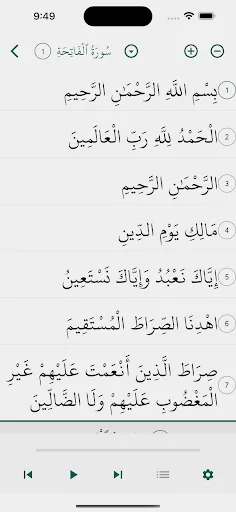 9:49
سُورَةُ ٱلْفَاتِحَةِ 1
بِسْمِ اللَّهِ الرَّحْمَٰنِ الرَّحِيمِ 1
الْحَمْدُ لِلَّهِ رَبِّ الْعَالَمِينَ 2
الرَّحْمَٰنِ الرَّحِيمِ 3
مَالِكِ يَوْمِ الدِّينِ 4
إِيَّاكَ نَعْبُدُ وَإِيَّاكَ نَسْتَعِينُ 5
اهْدِنَا الصِّرَاطَ الْمُسْتَقِيمَ 6
صِرَاطَ الَّذِينَ أَنْعَمْتَ عَلَيْهِمْ غَيْرِ 7
الْمَغْضُوبِ عَلَيْهِمْ وَلَا الضَّالِّينَ